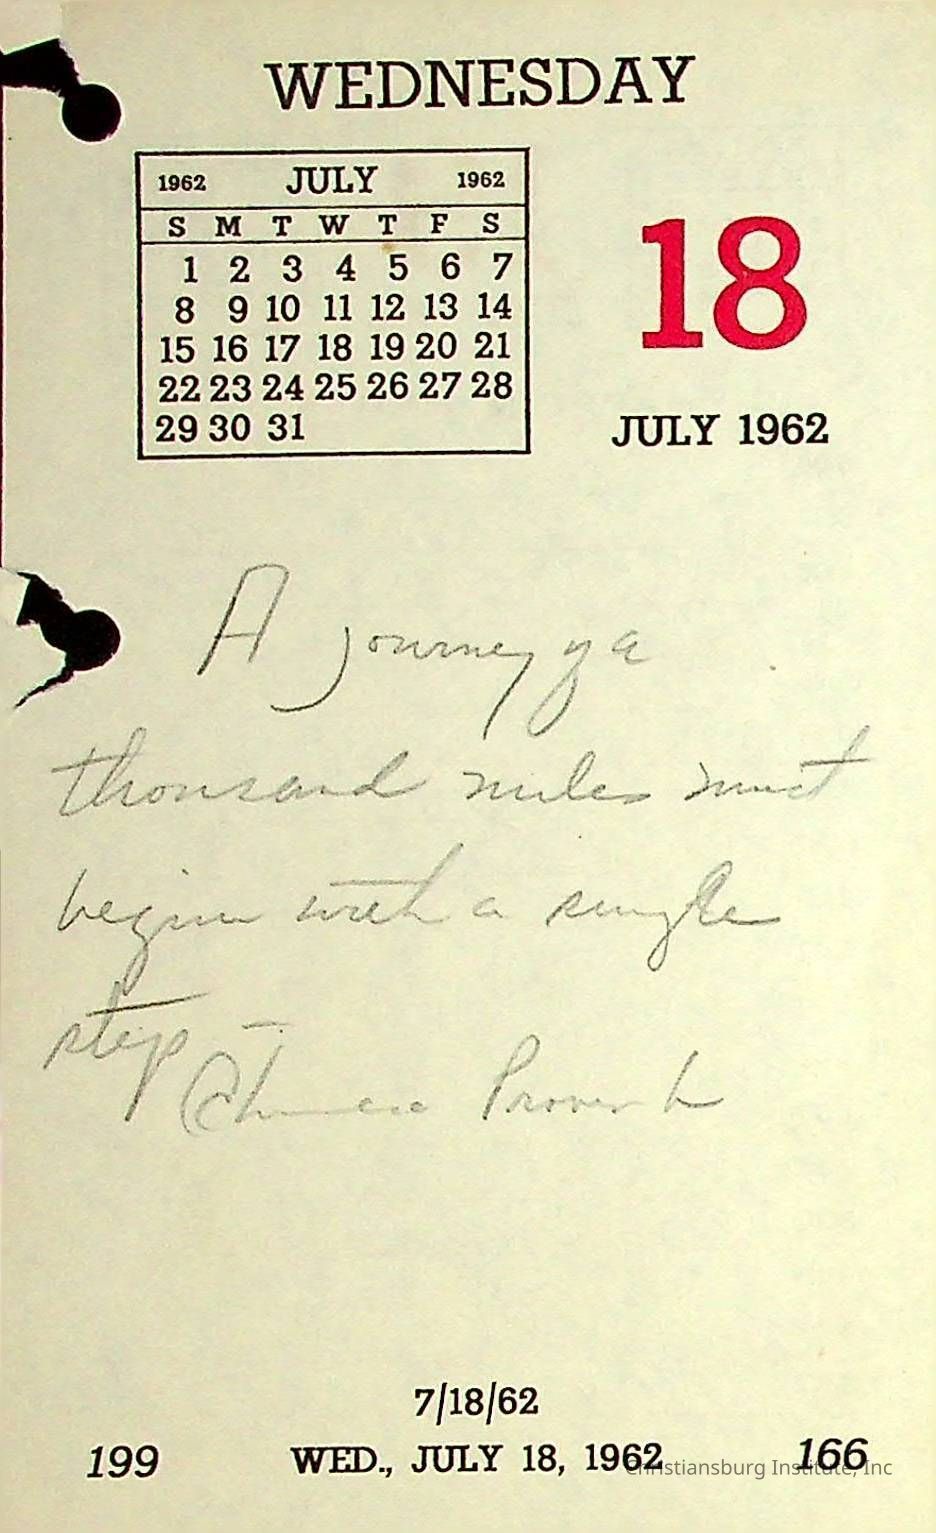 WEDNESDAY
1962 JULY 1962
S M T W T F S
1 2 3 4 5 6 7
8 9 10 11 12 13 14
15 16 17 18 19 20 21
22 23 24 25 26 27 28
29 30 31
18
JULY 1962
A journey of a
thousand miles must
begin with a single
step –
Chinese Proverb
7/18/62
199 WED., JULY 18, 1962 166
Christiansburg Institute, Inc